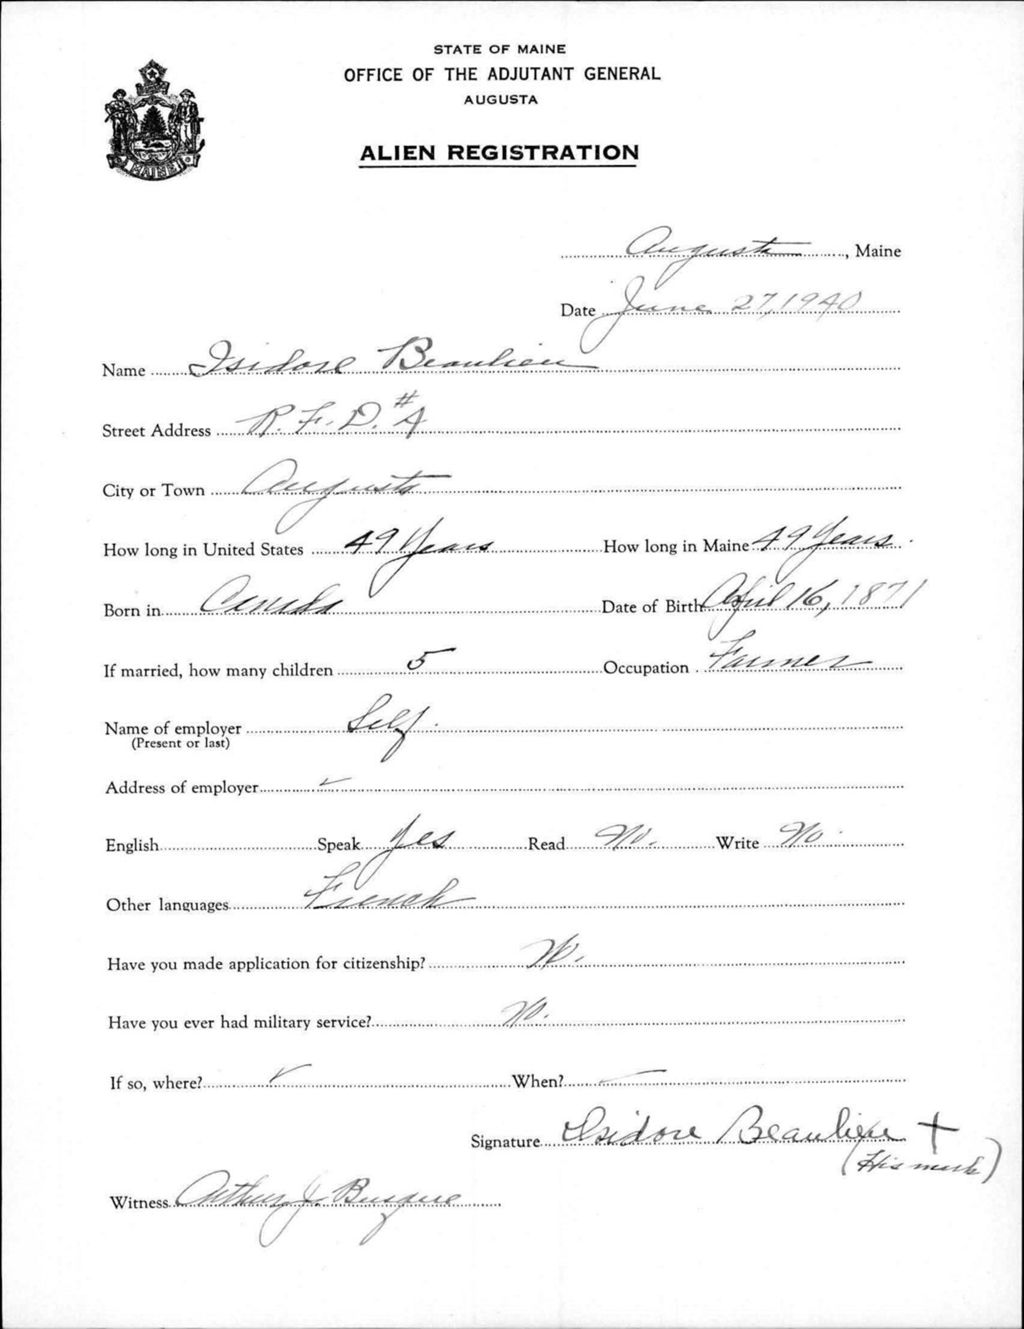 STATE OF MAINE
OFFICE OF THE ADJUTANT GENERAL
AUGUSTA
ALIEN REGISTRATION
MAINE
Augusta, Maine
Date June 27, 1940
Name Isidore Beaulieu
Street Address R. F. D. #4
City or Town Augusta
How long in United States 49 Years How long in Maine 49 Years.
Born in Canada Date of Birth April 16, 1871
If married, how many children 5 Occupation Farmer
Name of employer Self.
(Present or last)
Address of employer ✓
English Speak Yes Read No. Write No.
Other languages French
Have you made application for citizenship? No.
Have you ever had military service? No.
If so, where? ✓ When? ✓
Signature Isidore Beaulieu +
(His mark)
Witness Arthur J. Busque